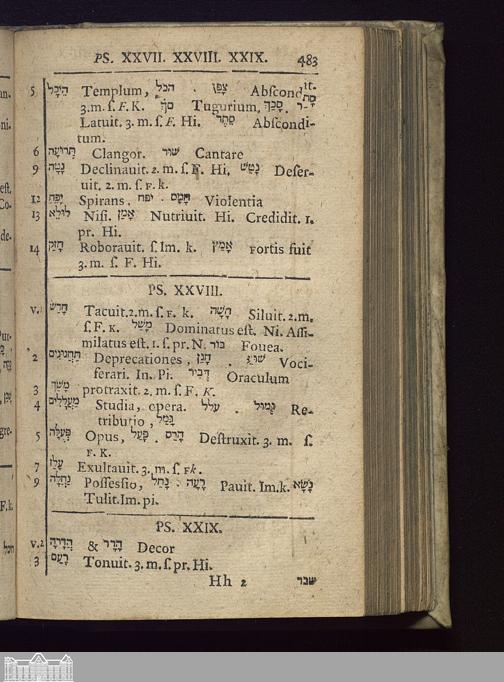 PS. XXVII. XXVIII. XXIX. 483
5 הֵיכָל Templum, הכל . צָפַן Abscondit.
3. m. s. F. K. סֹךְ Tugurium, סָכַךְ . סָתַר
Latuit. 3. m. s. F. Hi. סֵתֶר Absconditum.
6 תְּרוּעָה Clangor. שׁוּר Cantare
9 נָטָה Declinauit. 2. m. s. F. Hi, נָטַשׁ Deseruit. 2. m. s. F. k.
12 יָפֵחַ Spirans, יפח . חָמָס Violentia
13 לוּלֵא Nisi. אָמַן Nutriuit. Hi. Credidit. 1.
pr. Hi.
14 חָזַק Roborauit. s. Im. k. אָמַץ Fortis fuit
3. m. s. F. Hi.
PS. XXVIII.
v. 1 חָרַשׁ Tacuit. 2. m. s. F. k. חָשָׁה Siluit. 2. m.
s. F. K. מָשַׁל Dominatus est. Ni. Assimilatus est. 1. s. pr. N. בּוֹר Fouea.
2 תַּחֲנוּנִים Deprecationes, חָנַן . שׁוּעַ Vociferari. In. Pi. דְּבִיר Oraculum
3 מָשַׁךְ protraxit. 2. m. s. F. K.
4 מַעֲלָלִים Studia, opera. עלל . גְּמוּל Retributio, גָּמַל
5 פְּעֻלָּה Opus, פָּעַל . הָרַס Destruxit. 3. m. s.
F. K.
7 עָלַז Exultauit. 3. m. s. F k.
9 נַחֲלָה Possessio, נָחַל . רָעָה Pauit. Im. k. נָשָׂא
Tulit. Im. pi.
PS. XXIX.
v. 2 הֲדָרָה & הָדָר Decor
3 רָעַם Tonuit. 3. m. s. pr. Hi.
Hh 2 שבר